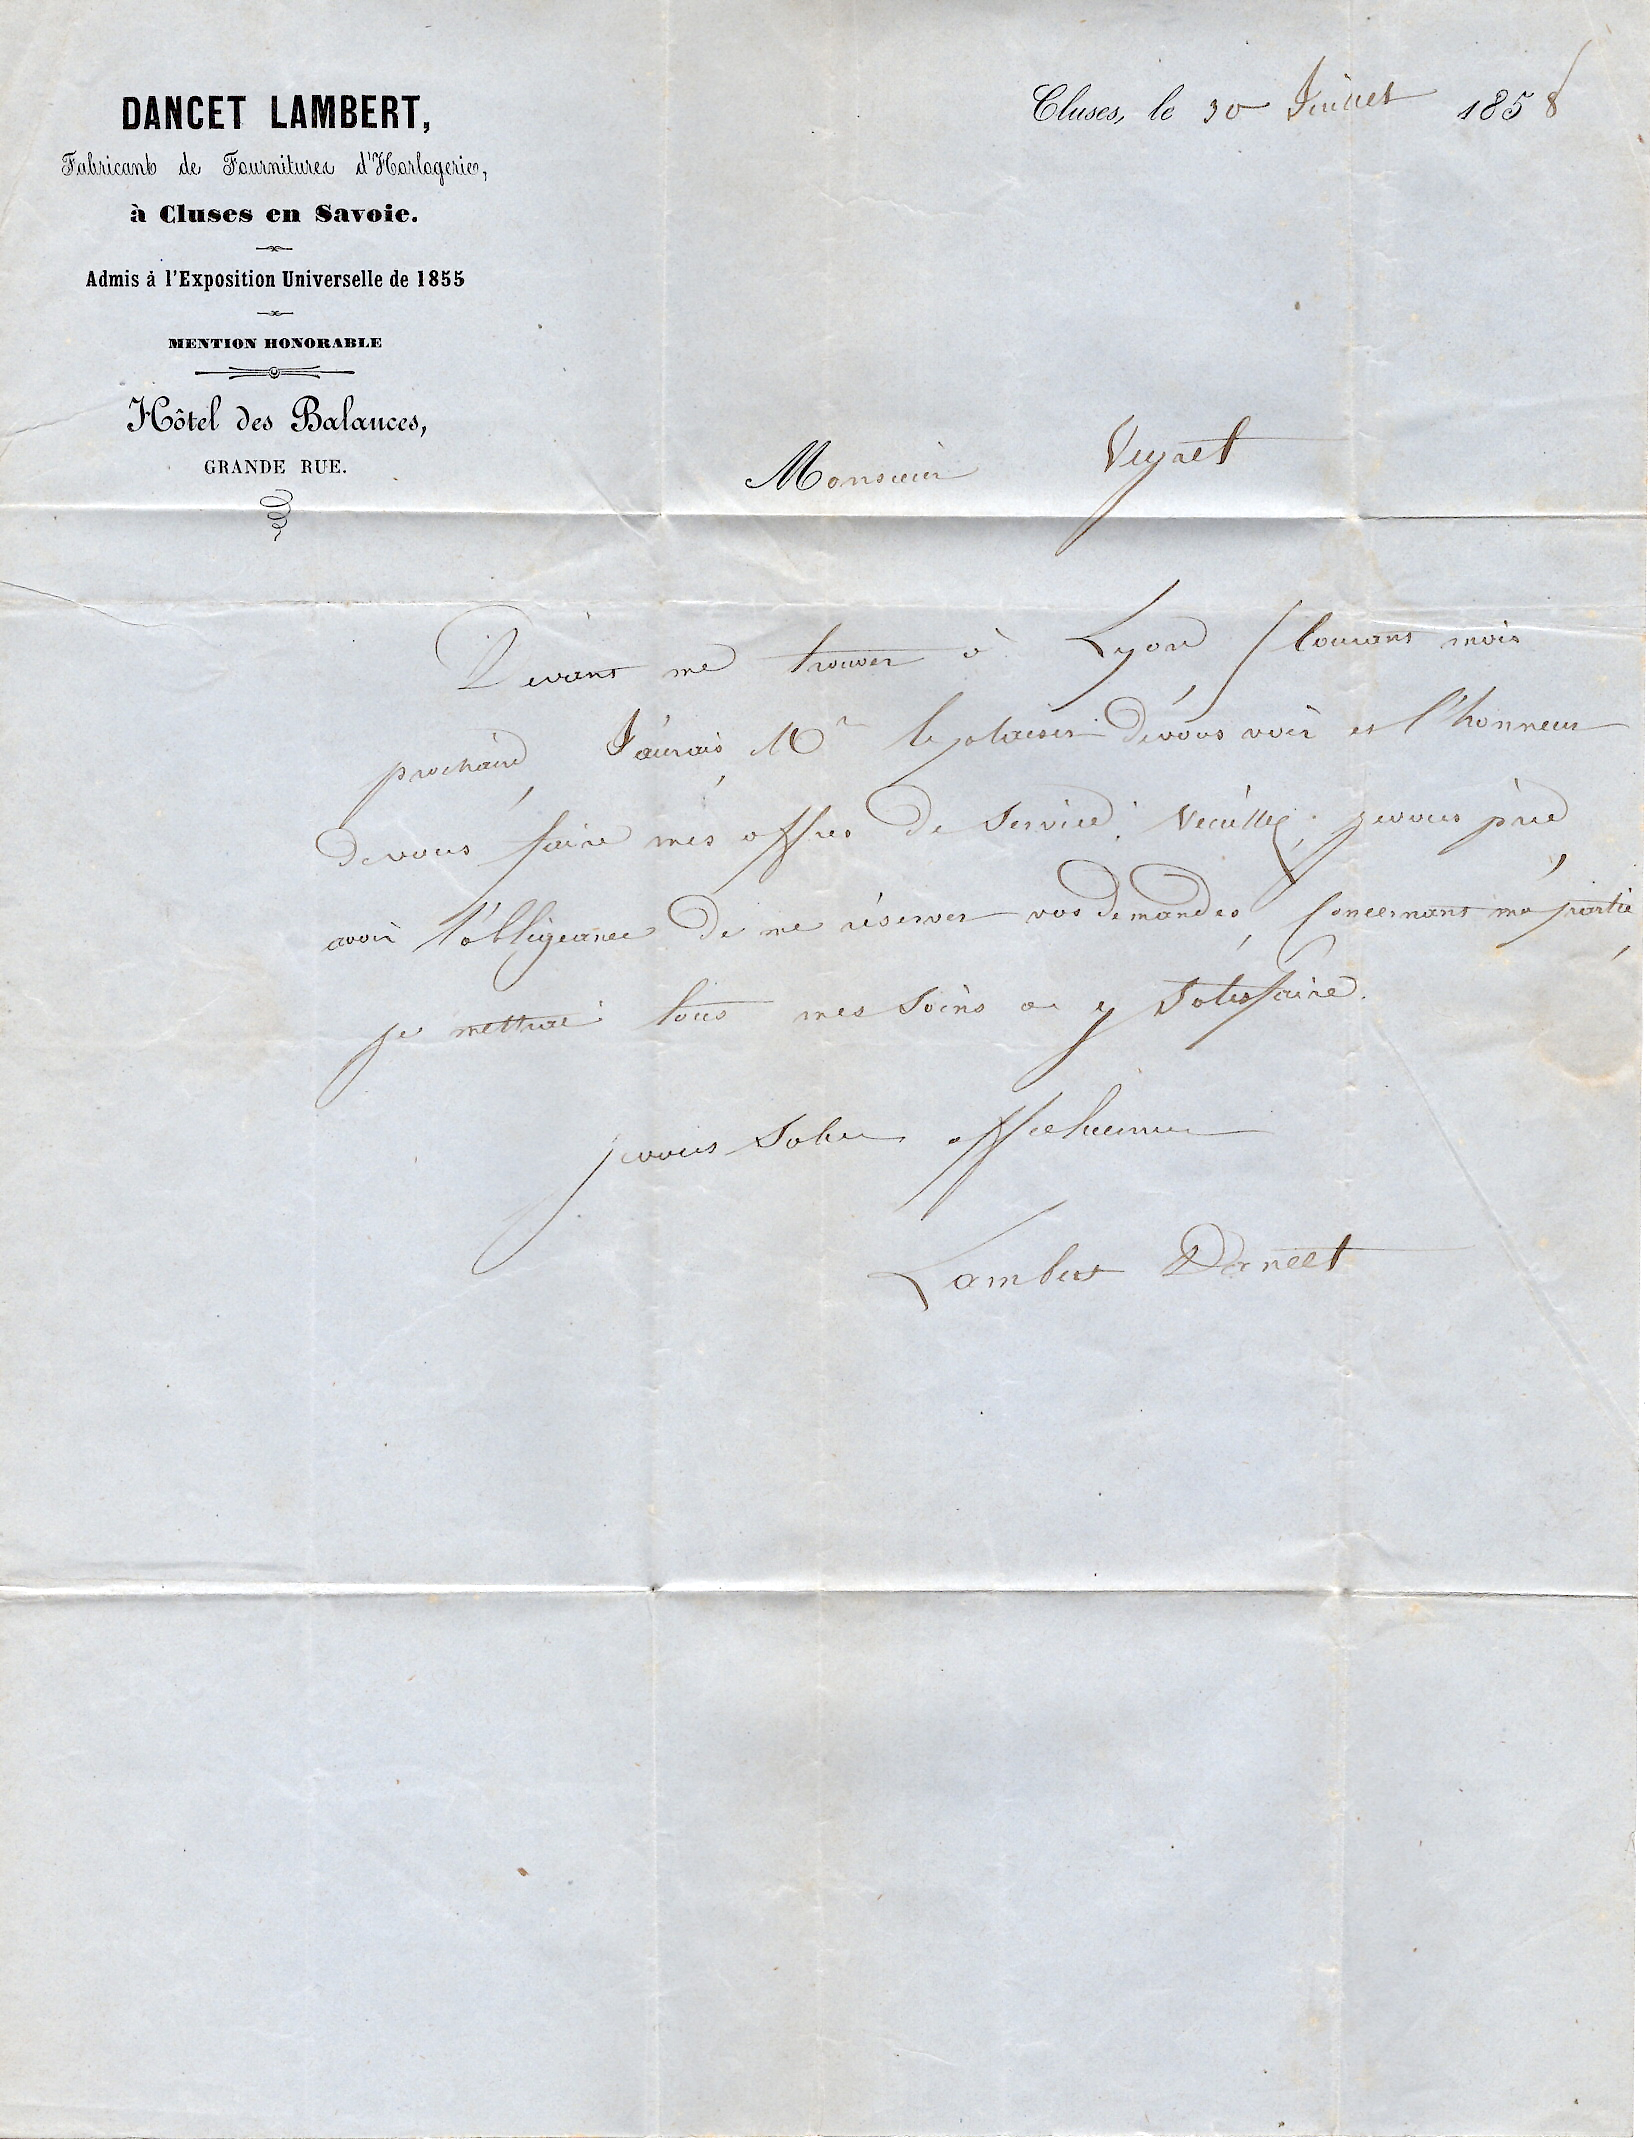 DANCET LAMBERT,
Fabricant de Fournitures d'Horlogerie,
à Cluses en Savoie.
Admis à l'Exposition Universelle de 1855
MENTION HONORABLE
Hôtel des Balances,
GRANDE RUE.
Cluses, le 30 Juillet 1858
Monsieur Veyret
Devant me trouver à Lyon, Courant mois
prochain, J'aurais Mr le plaisir de vous voir et l'honneur
de vous faire mes offres de Service. Veuillez, je vous prie,
avoir l'obligeance de me réserver vos demandes, Concernant ma partie,
je mettrai tous mes Soins a y Satisfaire.
je vous Salue
Lambert Dancet